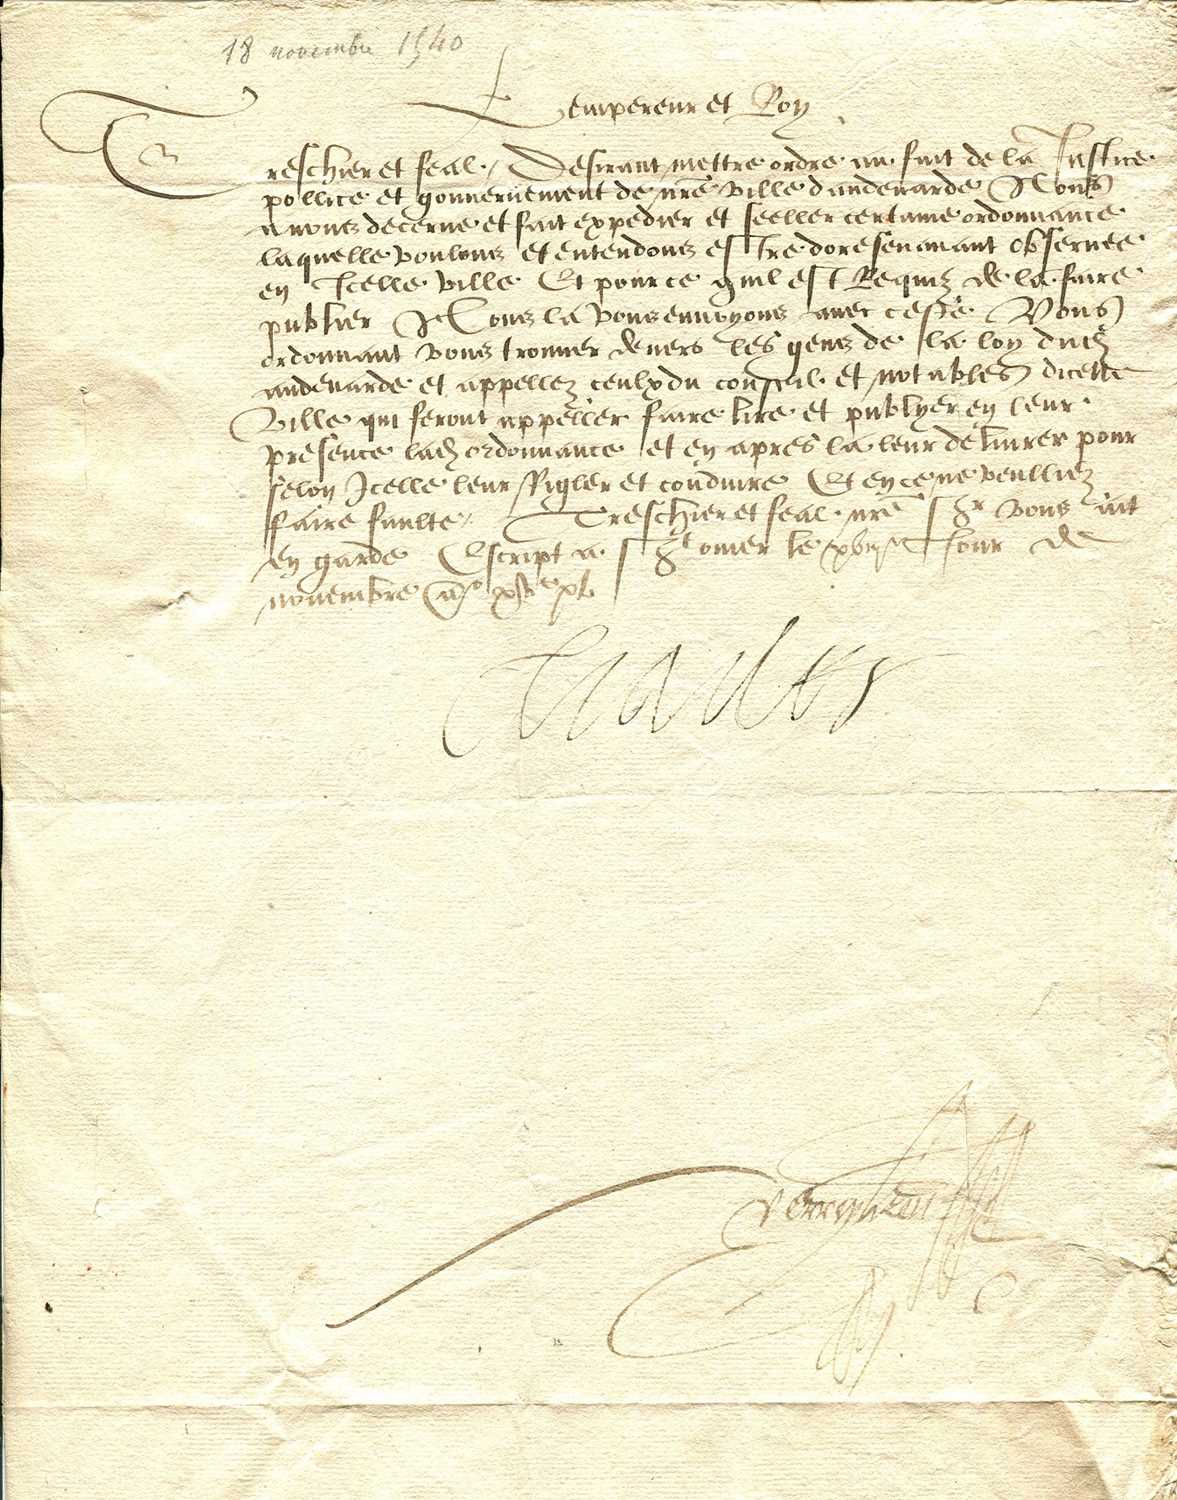 18 novembre 1540
Lempereur et Roy
Treschier et feal, Desirant mettre ordre au fait de la Justice
pollice et gouvernement de nre ville dandenarde Nous
avons decerne et fait expedier et seeller certaine ordonnance
laquelle voulons et entendons estre doresenavant observee
en Icelle ville Et pource quil est Requiz de la faire
publier Nous la vous envoyons avec ceste Vous
ordonnant vous trouver devers les gens de la loy dud
andenarde et appellez ceulx du conseil et notables dicelle
ville qui seront appeller faire lire et publyer en leur
presence lad ordonnance et en apres la leur delivrer pour
selon Icelle leur Rigler et conduire Et en ce ne veulliez
faire faulte, Treschier et feal nre sr vous ait
en garde Escript a st omer le xviije Jour de
novembre ao xvc xl
Charles
Verreyken